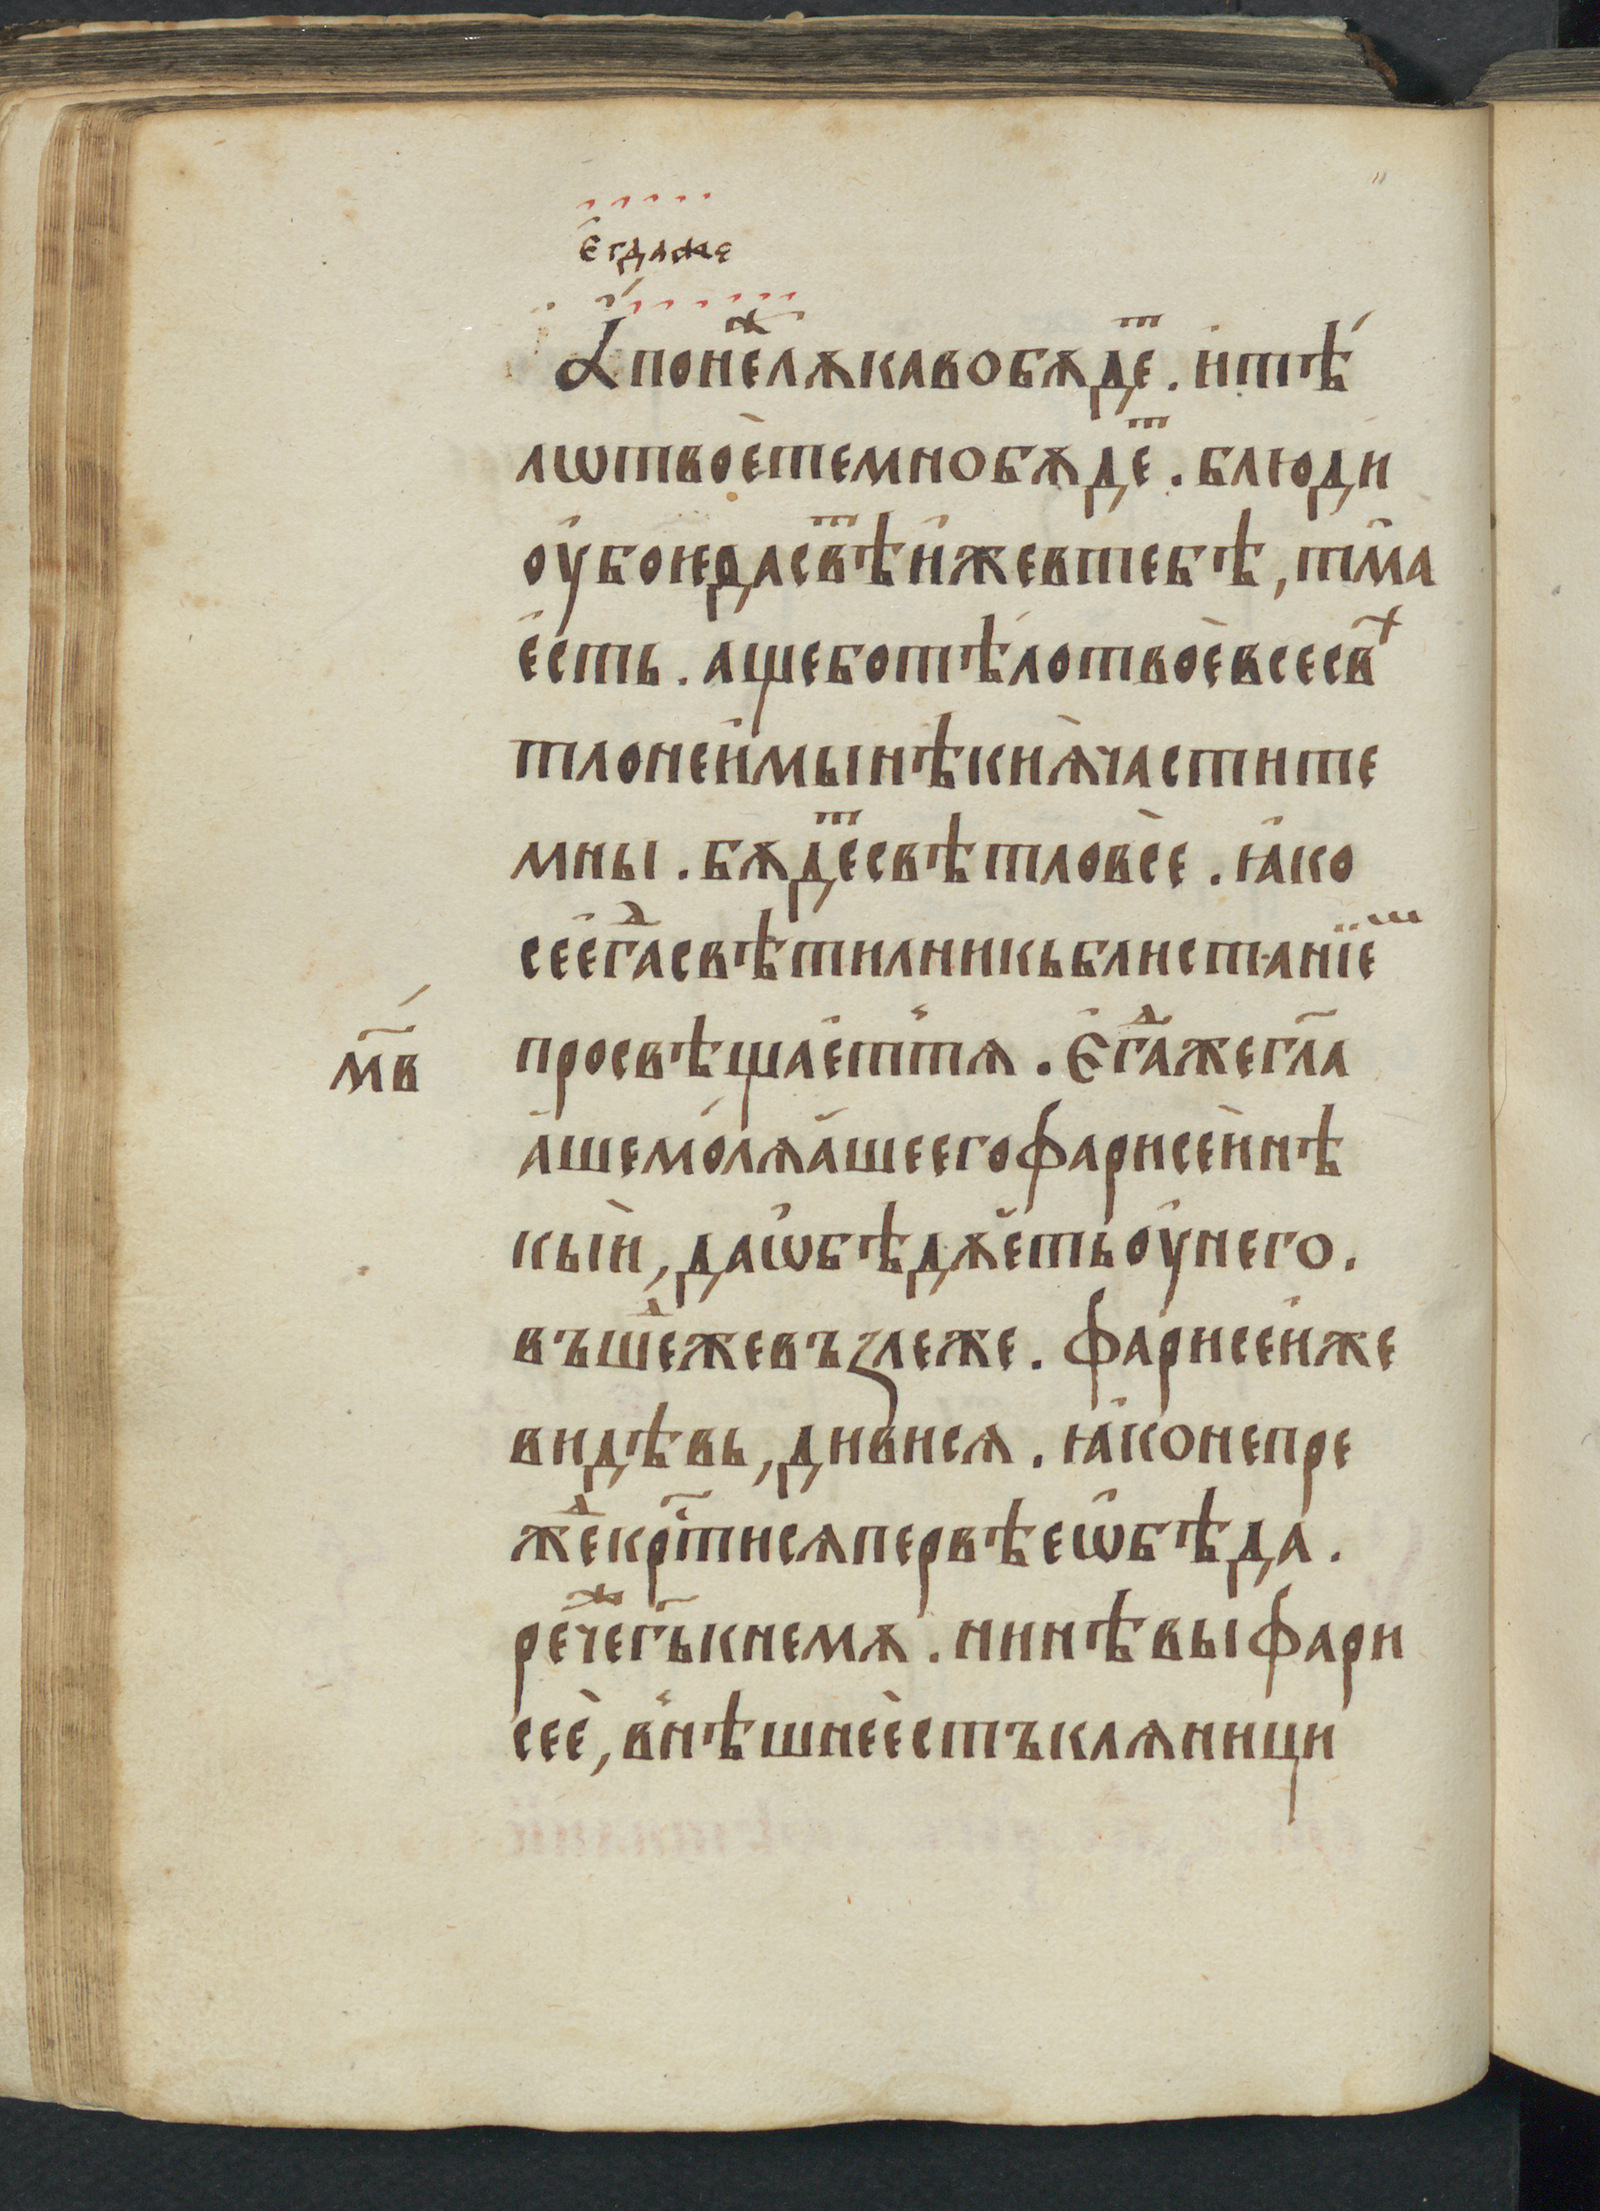 є҆гдаже
Апонеⷤлѫкавобѫдеⷮ. и҆тѣ́
лѡтвоѐтемнобѫдеⷮ. блюди
оу҆боедасвѣⷮи҆жевтебѣ, тма̑
є҆сть. ащеботѣ́лотвоѐвсесвⷯ
тлонеи҆мынѣкиѧ̀частите
мны. бѫдеⷮсвѣтловсѐ. ꙗ҆ко
сеегⷣасвѣтилникьблистаніеⷨ
просвѣщаетⸯтѧ. Єгⷣажегл҃а
мв҃
а҆шемо́лѧа҆шеегофарисеѝнѣ
кыѝ, даѡ҆бѣдѫ҆етьоу҆него.
въшеⷣжевъꙁлеже. фарисеи҆же
видѣвь, дивисѧ. ꙗ҆конепре
жеⷣекрⷭ҇тисѧпервѣеѡ҆бѣда.
речеⷤгь҃кнемѫ. нинѣвыфари
сеѐ, вⸯнѣшнееѐстъклѧници